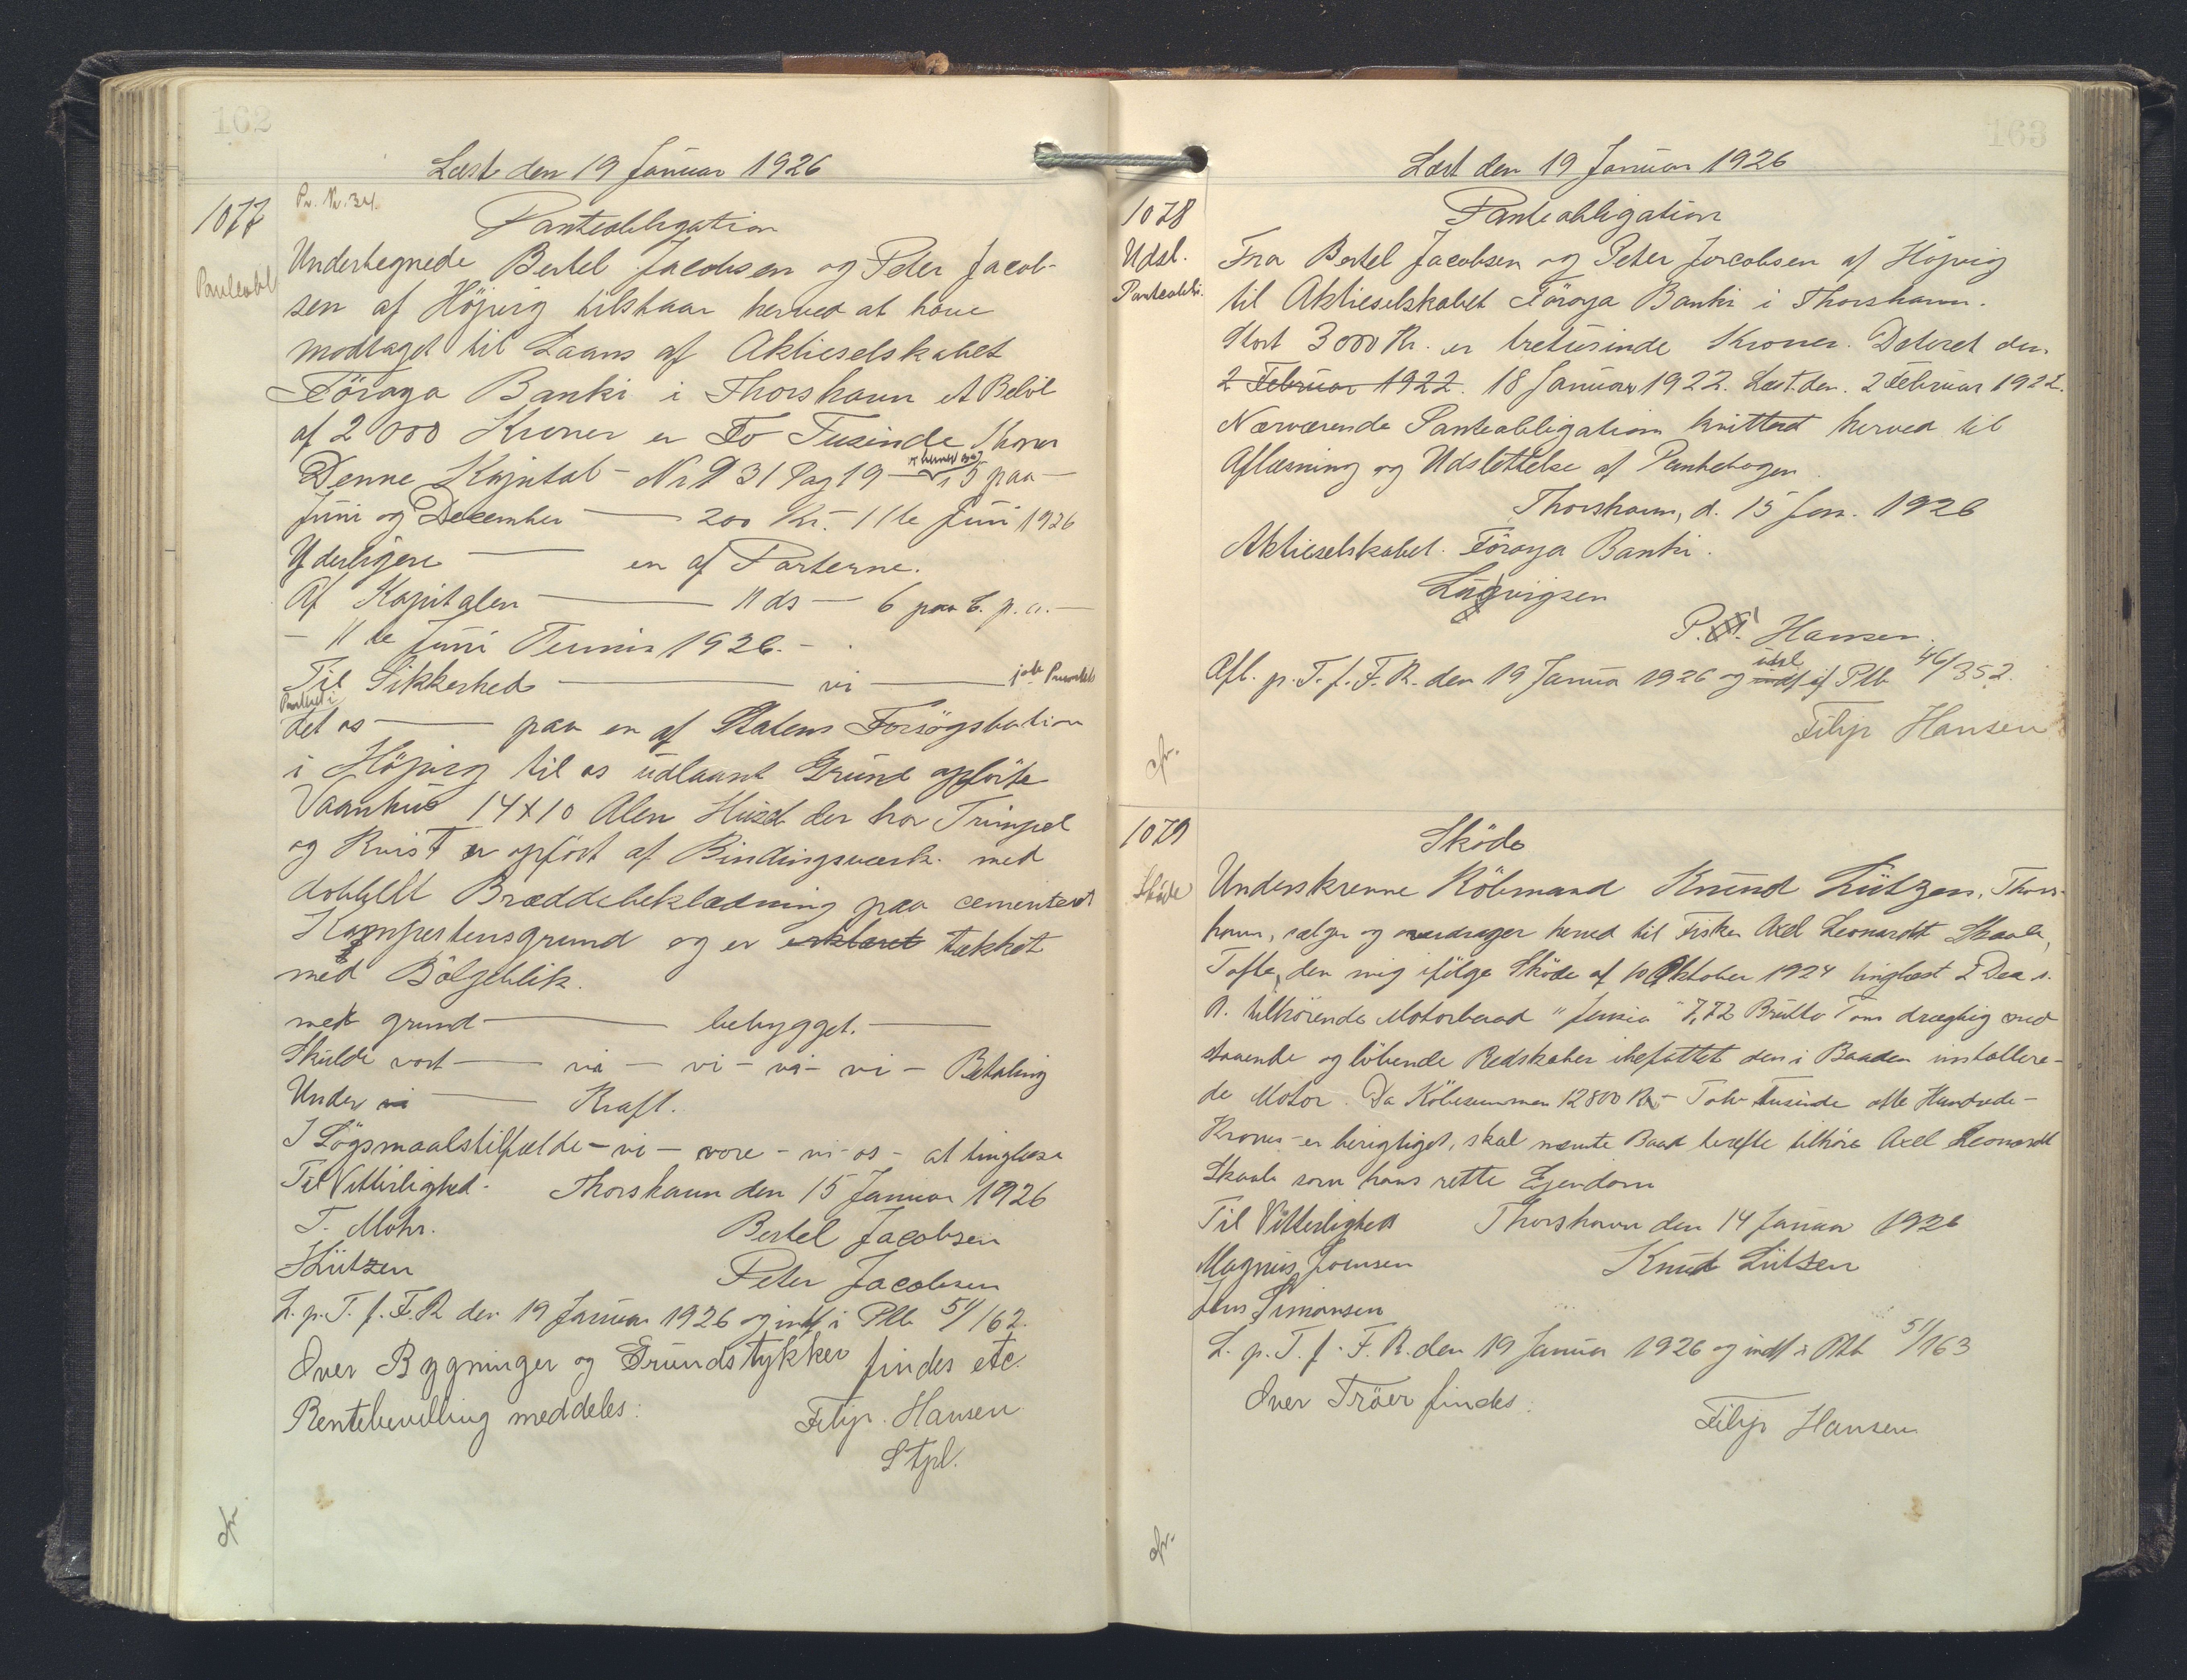 162
Læst den 19 Januar 1926
1077
Pr. Nr. 34.
Panteobligation
Panteobl
Undertegnede Bertel Jacobsen og Peter Jacob-
sen af Höjvig tilstaar herved at have
modtaget til Laans af Aktieselskabet
Föroya Banki i Thorshavn et Belöb
af 2000 Kroner er To Tusinde Kroner
Denne Kapital - Nr 9 31 Pag 19 - 5 paa -
Juni og December — 200 Kr. - 11te Juni 1926
Yderligere — en af Parterne.
Af Kapitalen — 11ds — 6 paa C. p. a. —
- 11te Juni Termin 1926. -
Til Sikkerhed — vi —
Panteti
det os — paa en af Statens Forsögsstation
i Höjvig til os udlaant Grund opförte
Vaanhus 14 x 10 Alen Huset der har Trimpel
og Kvist er opfört af Bindingsværk. med
dobbelt Bræddebeklædning paa cementeret
Kampestensgrund og er erklæret tækket
med Bölgeblik.
med grund — bebygget. —
Skulde vort — via — vi - vi - vi - Betaling
Under vi — Kraft.
I Lögsmaalstilfælde - vi - vore - vi - os - at tinglæse
Til Vitterlighed. Thorshavn den 15 Januar 1926
T. Mohr. Bertel Jacobsen
HLützen Peter Jacobsen
L. p. T. f. F. R den 19 Januar 1926 og indf i Ptb 51/162.
Over Bygninger og Grundstykker findes etc.
Rentebevilling meddeles:
Filip. Hansen
Stpl.
cfr.
163
Læst den 19 Januar 1926
1078
Panteobligation
Udsl.
Panteobli.
Fra Bertel Jacobsen og Peter Jacobsen af Höjvig
til Aktieselskabet Föroya Banki i Thorshavn.
Stort 3000 Kr. er tretusinde Kroner. Dateret den
2 Februar 1922. 18 Januar 1922. Læst. den. 2 Februar 1922.
Nærværende Panteobligation kvitteret herved til
Aflæsning og Udslettelse af Pantebogen.
Thorshavn, d. 15 Jan. 1926
Aktieselskabet. Föroya Banki.
Ludvigsen
P. Hansen.
Afl. p. T. f. F. R. den 19 Januar 1926 og indf udsl af Ptb 46/352.
Filip Hansen
cfr.
1079
Sköde
Sköde
Underskrevne Köbmand Knud Lützen, Thors-
havn, sælger og overdrager herved til Fisker Axel Leonardt Skaale,
Tofte, den mig ifölge Sköde af 10 Oktober 1924 tinglæst 2 Dec s.
A. tilhörende Motorbaad "Jensia" 7,72 Brutto Tons drægtig med
staaende og löbende Redskaber ibefattet den i Baaden installere-
de Motor. Da Köbesummen 12800 Kr - Tolv tusinde otte Hundrede -
Kroner - er berigtiget, skal nævnte Baad herefter tilhöre Axel Leonardt
Skaale som hans rette Ejendom
Til Vitterlighed Thorshavn den 14 Januar 1926
Magnus Joensen Knud Lützen
Jens Simonsen
L. p. T. f. F. R. den 19 Januar 1926 og indf i Ptb 51/163
Over Tröer findes:
Filip Hansen
cfr.